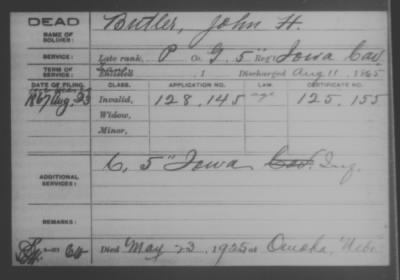 DEAD
NAME OF SOLDIER: Butler, John H.
SERVICE: Late rank, P Co. G, 5" Reg't Iowa Cav.
TERM OF SERVICE: Enlisted , 1 Discharged Aug 11, 1865
DATE OF FILING. CLASS. APPLICATION NO. LAW. CERTIFICATE NO.
1867 Aug. 23 Invalid, 128,145 125,155
Widow,
Minor,
ADDITIONAL SERVICES: C, 5" Iowa Cav. Inf.
REMARKS:
Died May 23, 1925 at Omaha, Nebr.